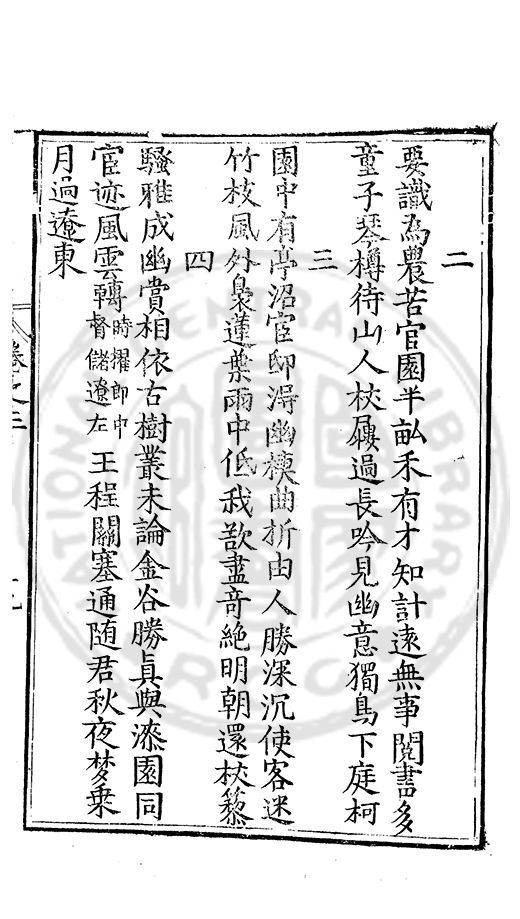 二
要識為農苦官園半畆禾有才知計遠無事閱書多
童子琴樽待山人杖屨過長吟見幽意獨鳥下庭柯
三
園中有亭沼宦邸得幽棲曲折由人勝深沉使客迷
竹枝風外裊蓮葉雨中低我欲盡奇絕明朝還杖藜
四
騷雅成幽賞相依古樹叢未論金谷勝真與漆園同
宦迹風雲轉時擢郎中督儲遼左王程關塞通随君秋夜梦乗
月過遼東